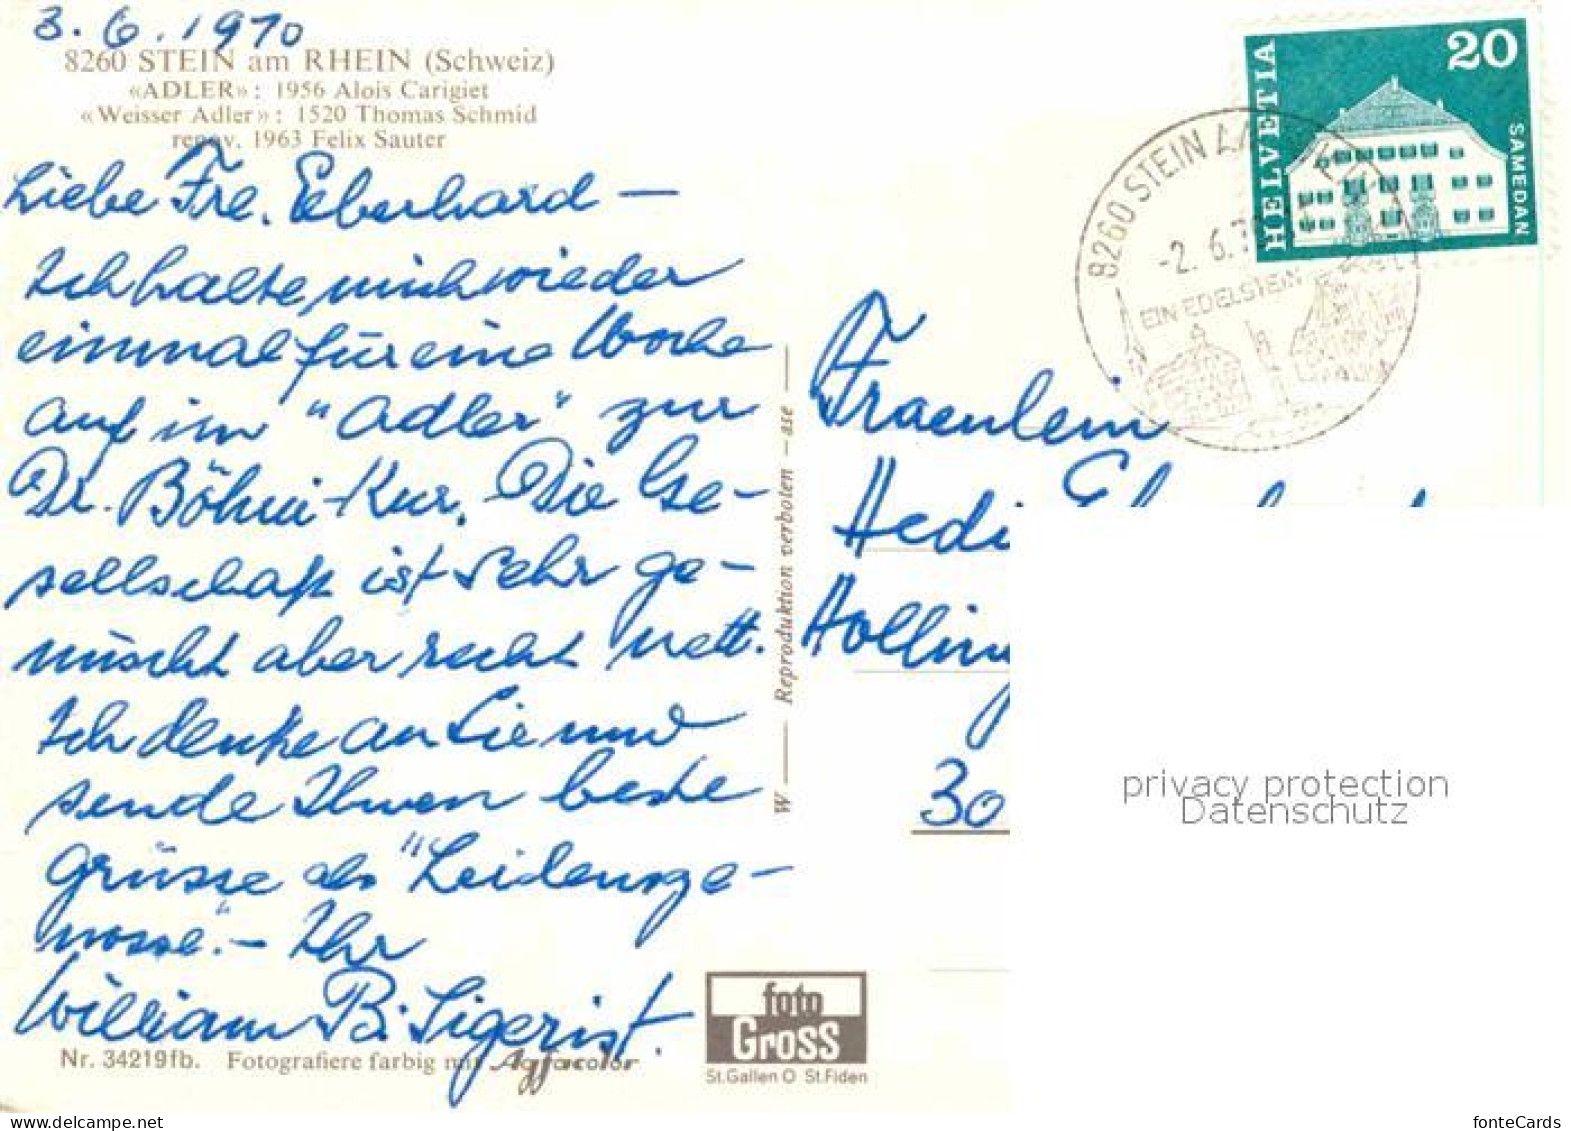 3.6.1970
8260 STEIN am RHEIN (Schweiz)
«ADLER»: 1956 Alois Carigiet
«Weisser Adler»: 1520 Thomas Schmid
renov. 1963 Felix Sauter
Liebe Frl. Eberhard –
Ich halte mich wieder
einmal für eine Woche
auf im "Adler" zur
Dr. Böhni-Kur. Die Ge-
sellschaft ist sehr ge-
mischt aber recht nett.
Ich denke an Sie und
sende Ihnen beste
Grüsse als "Leidensge-
nosse". – Ihr
William B. Sigerist.
Nr. 34219fb. Fotografiere farbig mit Agfacolor
W — Reproduktion verboten – ase —
foto
GROSS
St.Gallen O St.Fiden
HELVETIA
20
SAMEDAN
8260 STEIN
-2.6.7
EIN EDELSTEIN
Fraeulein
Hedi
Holling
30
privacy protection
Datenschutz
www.delcampe.net
fonteCards